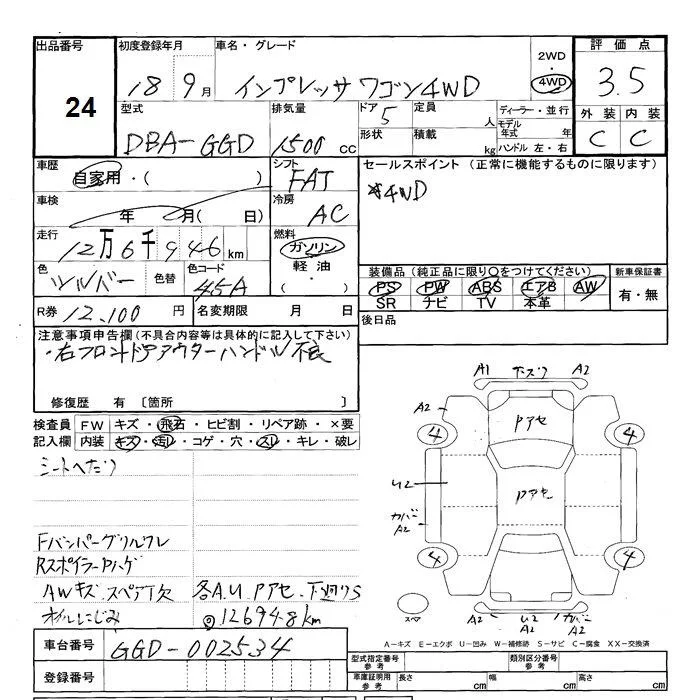 出品番号 初度登録年月 車名・グレード 2WD 4WD 評価点
24 18 9月 インプレッサ ワゴン4WD 3.5
型式 排気量 ドア 定員 ディーラー・並行 外装 内装
DBA-GGD 1500 cc 5 人 モデル年式 年 C C
形状 積載 kg ハンドル 左・右
車歴 シフト セールスポイント (正常に機能するものに限ります)
自家用・( ) FAT *4WD
車検 冷房
年 月( 日) AC
走行 燃料
12万6千946km ガソリン
色 色替 色コード 軽油 装備品 (純正品に限り○をつけてください) 新車保証書
シルバー 45A ・( ) PS PW ABS エアB AW 有・無
SR ナビ TV 本革
R券 12,100 円 名変期限 月 日 後日品
注意事項申告欄(不具合内容等は具体的に記入して下さい)
・右フロントドアアウターハンドル不良
修復歴 有 〔箇所 〕
検査員 FW キズ・飛石・ヒビ割・リペア跡・×要
記入欄 内装 キズ・汚れ・コゲ・穴・スレ・キレ・破レ
シートへたり
Fバンパーグリルワレ
RスポイラーPハゲ
AWキズ スペアT欠 各A.U Pアセ 下廻りS
オイルにじみ ◎126948km
A1 A2
A2 Pアセ
4 4
U2 Pアセ
A2
4 4
スペア A2 U2 A2
A-キズ E-エクボ U-凹み W-補修跡 S-サビ C-腐食 XX-交換済
車台番号 GGD-002534
型式指定番号 参考 類別区分番号 参考
登録番号 車庫証明用 参考 長さ cm 幅 cm 高さ cm